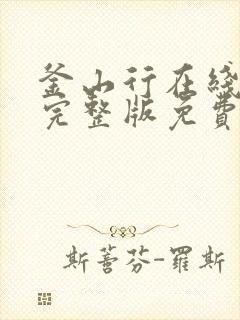 釜山行在线
完整版免費
斯蒈芬-羅斯